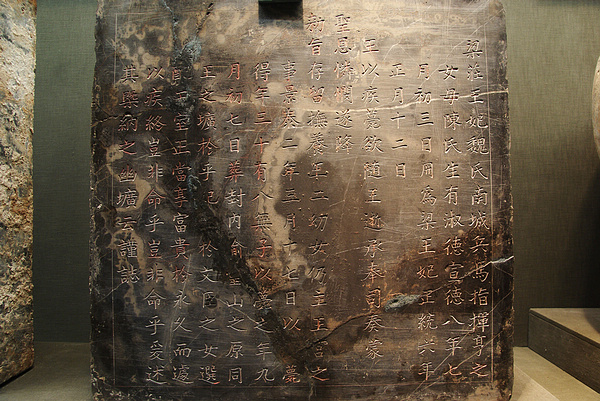 梁莊王妃魏氏南城兵馬指揮亨之
女母陳氏生有淑德宣德八年七
月初三日冊為梁王妃正統六年
正月十二日
王以疾薨欲隨王逝承奉司奏蒙
聖恩憐憫遂降
勑旨存留撫養王二幼女仍主王宮之
事景泰二年三月十七日以薨
得年三十有八無子以薨之年九
月初七日葬封內山之原同
王之壙於乎妃於文之女選
室正當享富貴於永久而遽
以疾終豈非命乎豈非命乎爰述
其槩納之幽壙云謹誌